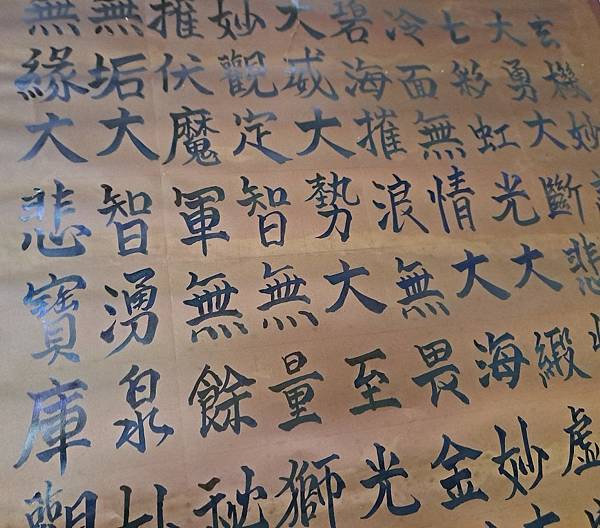 玄機妙
大勇大斷悲
七彩虹光大緞虛
冷面無情大海妙
碧海摧浪無畏金
大威大勢大至光
妙觀定智無量獅
摧伏魔軍無餘祕
無垢大智湧泉妙
無緣大悲寶庫觀